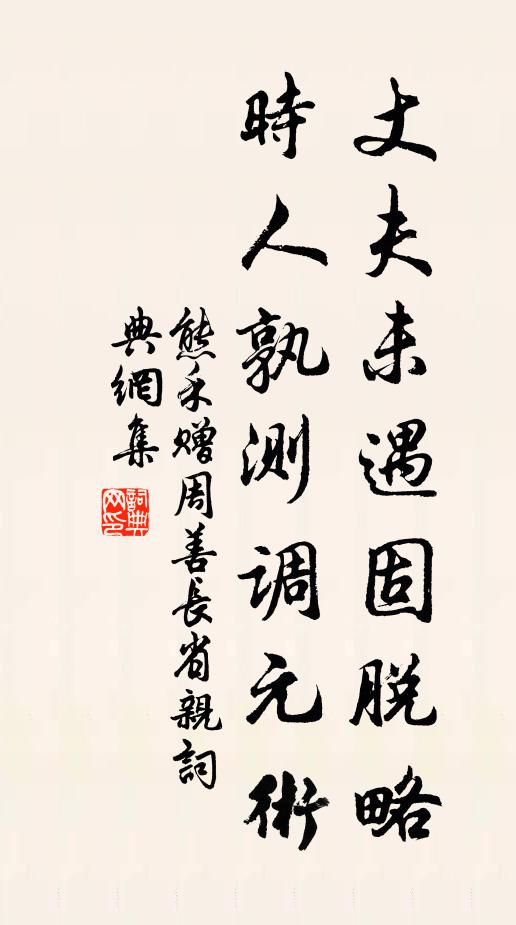 丈夫未遇固脱略
時人孰測調元術
熊禾贈周善長省親詞
典網集
詞典網印